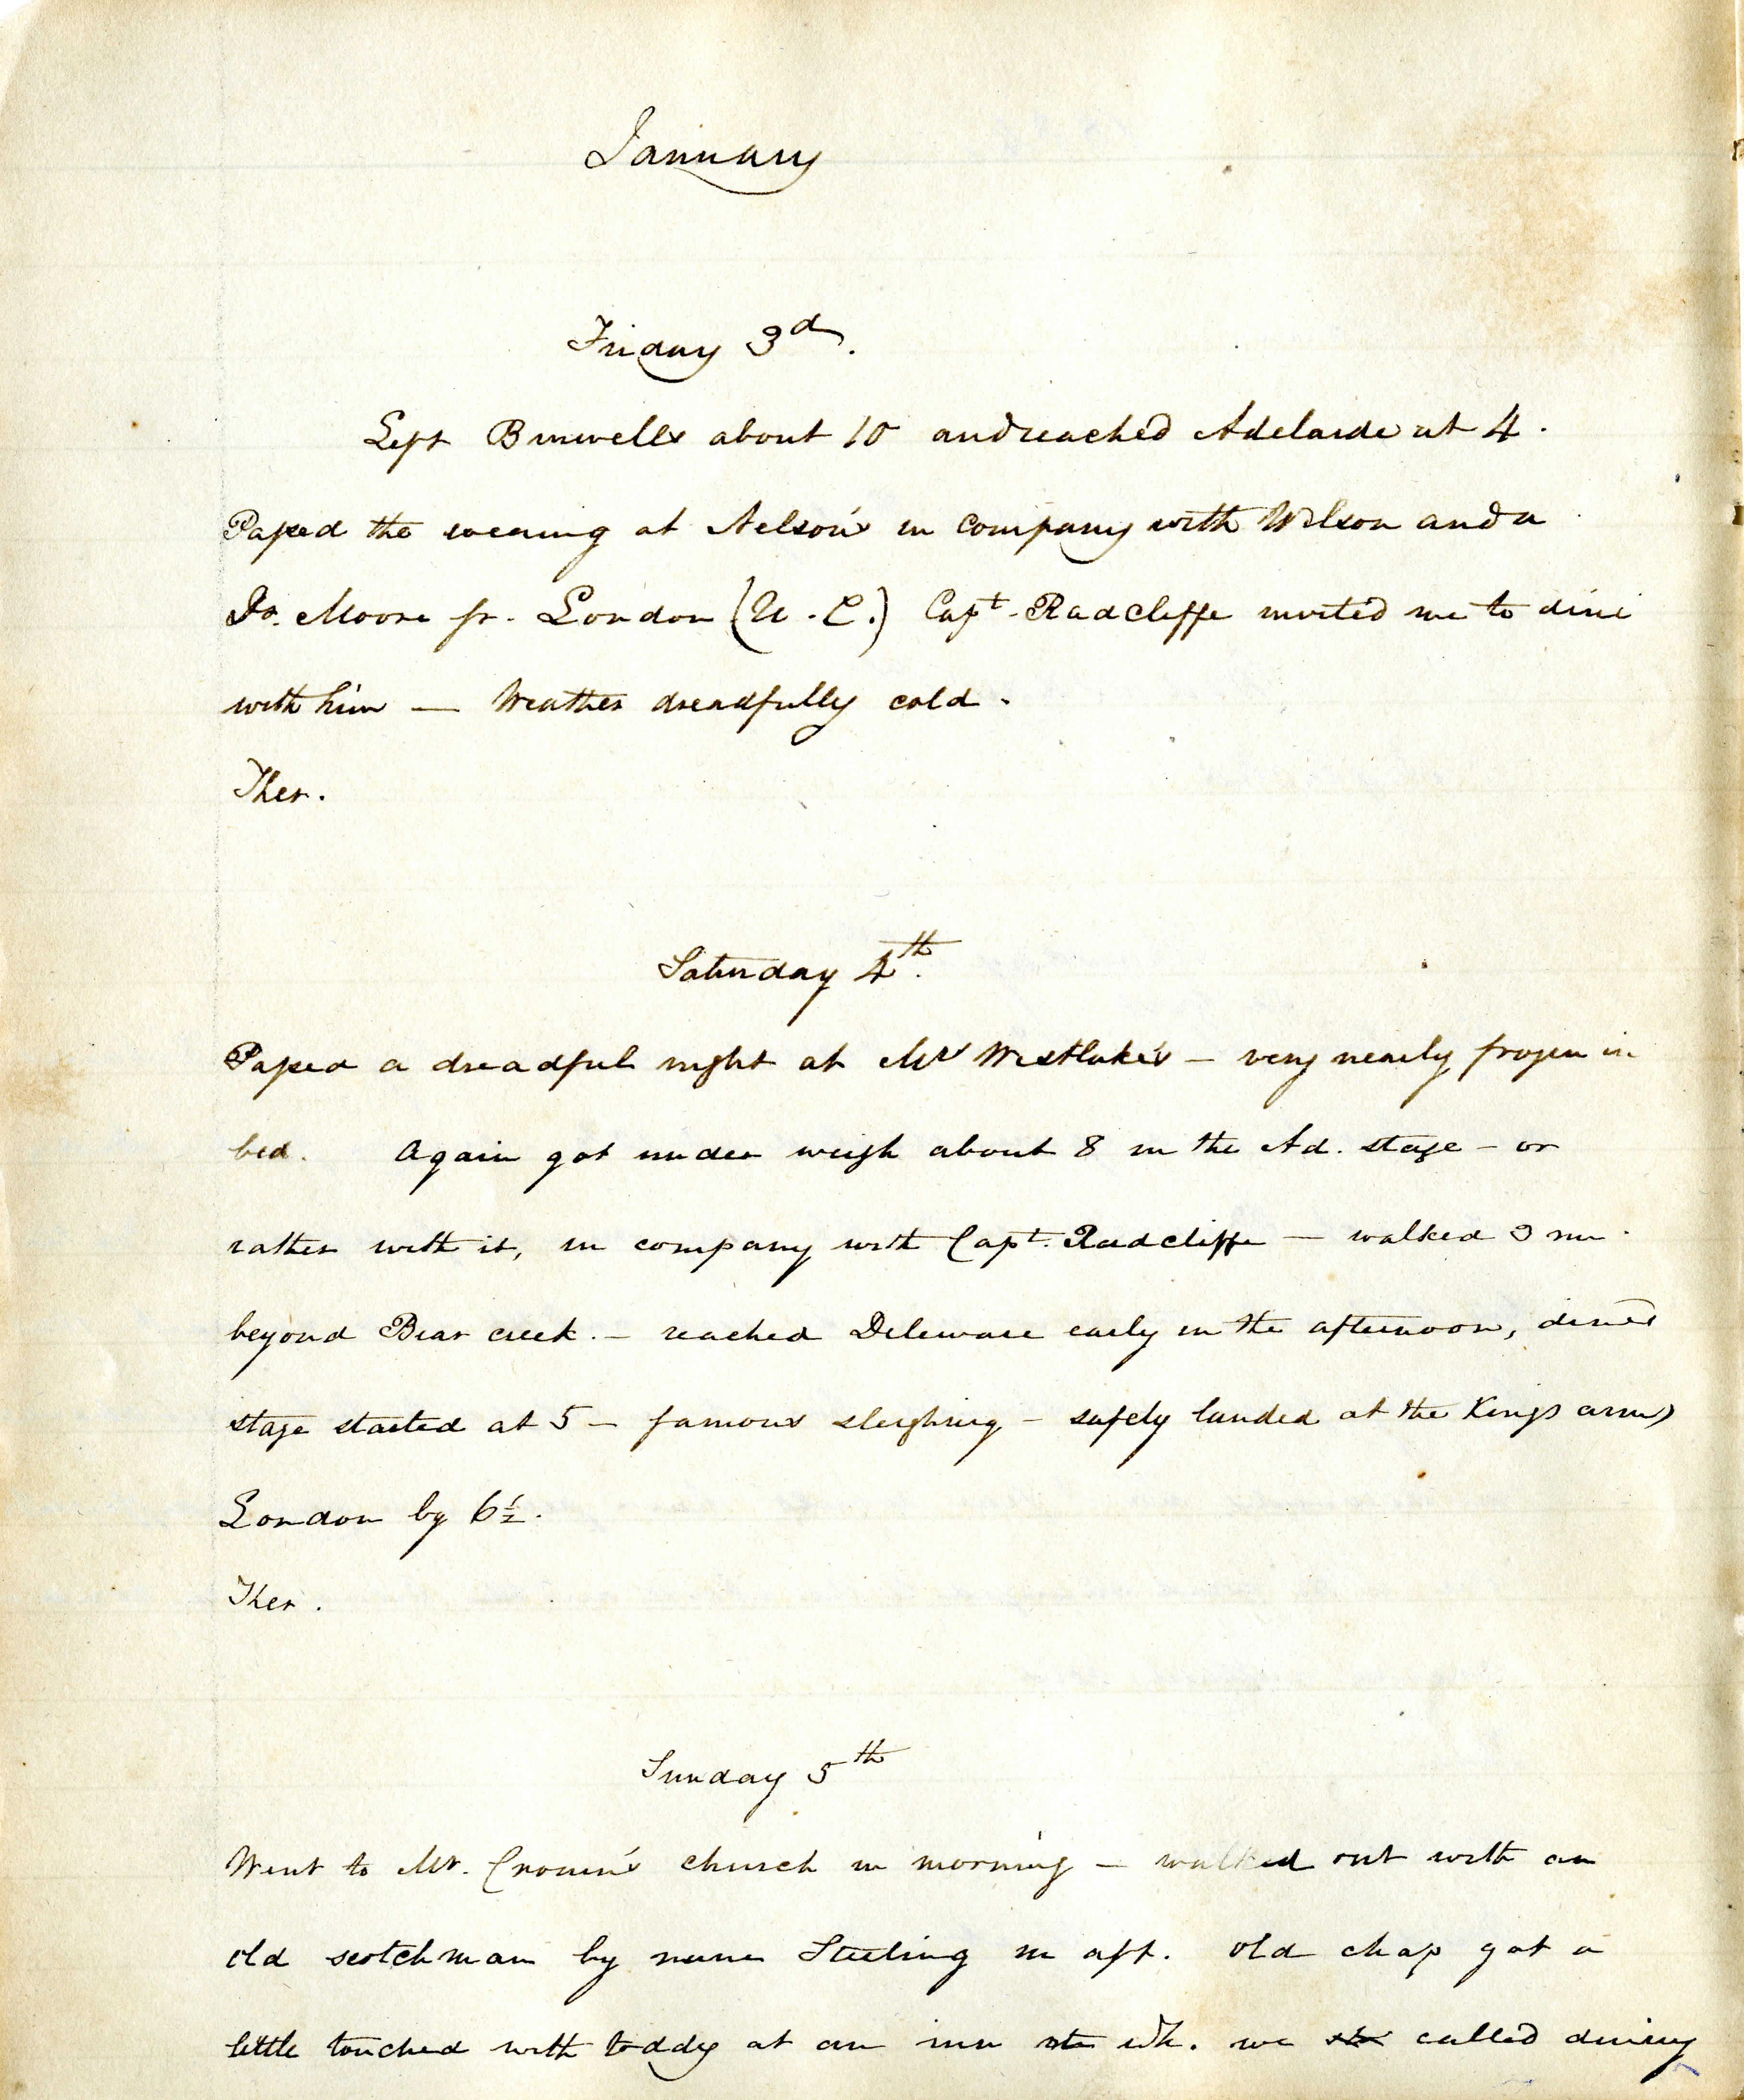 January
Friday 3d.
Left Burwells about 10 and reached Adelaide at 4.
Passed the evening at Nelson's in company with Wilson and a
Dr. Moore fr. London (U.C.) Capt. Radcliffe invited me to dine
with him — Weather dreadfully cold.
Ther.
Saturday 4th.
Passed a dreadful night at Mrs Westlake's — very nearly frozen in
bed. Again got under weigh about 8 in the Ad. stage — or
rather with it, in company with Capt. Radcliffe — walked 3 mi.
beyond Bear creek. — reached Deleware early in the afternoon, dined
stage started at 5 — famous sleighing — safely landed at the Kings arms
London by 6½.
Ther.
Sunday 5th
Went to Mr. Cronin's church in morning — walked out with an
old scotchman by name Steeling in aft. old chap got a
little touched with toddy at an inn wh. we called during